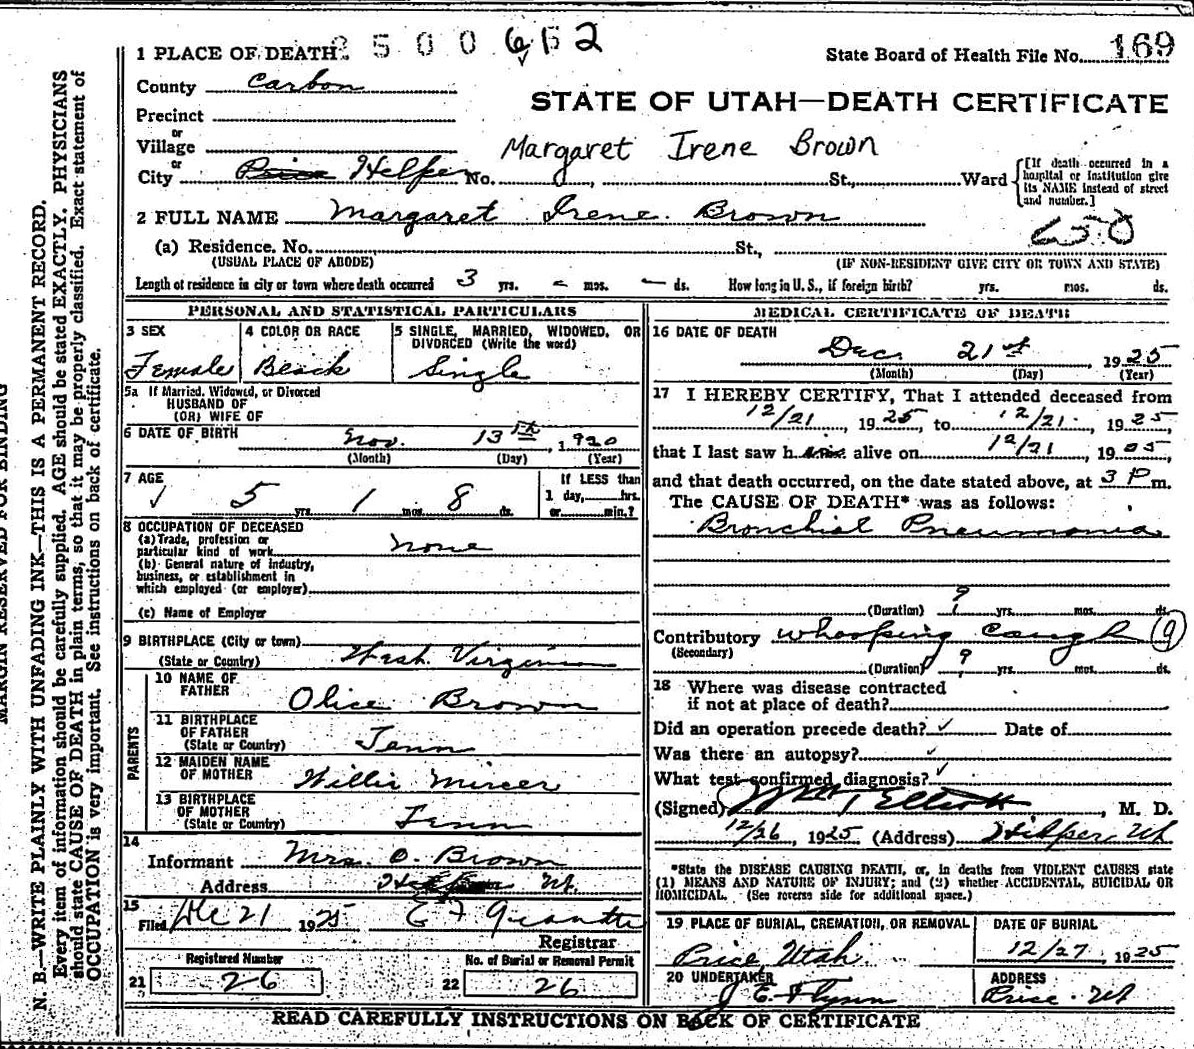 1 PLACE OF DEARTH 2500 662
State Board of Health File No. 169
County Carbon
STATE OF UTAH—DEATH CERTIFICATE
Precinct
or
Village
Margaret Irene Brown
or
City Price Helper No. , St., Ward
[If death occurred in a hospital or institution give its NAME instead of street and number.]
2 FULL NAME Margaret Irene Brown
650
(a) Residence. No. St.,
(USUAL PLACE OF ABODE) (IF NON-RESIDENT GIVE CITY OR TOWN AND STATE)
Length of residence in city or town where death occurred 3 yrs. – mos. – ds. How long in U. S., if foreign birth? yrs. mos. ds.
PERSONAL AND STATISTICAL PARTICULARS
3 SEX
Female
4 COLOR OR RACE
Black
5 SINGLE, MARRIED, WIDOWED, OR DIVORCED (Write the word)
Single
5a If Married, Widowed, or Divorced
HUSBAND OF
(OR) WIFE OF
6 DATE OF BIRTH Nov. 13th, 1920
(Month) (Day) (Year)
7 AGE
5 yrs. 1 mos. 8 ds.
If LESS than
1 day, hrs.
or min.?
8 OCCUPATION OF DECEASED
(a) Trade, profession or
particular kind of work none
(b) General nature of industry,
business, or establishment in
which employed (or employer)
(c) Name of Employer
9 BIRTHPLACE (City or town)
(State or Country) West Virginia
PARENTS
10 NAME OF
FATHER Olice Brown
11 BIRTHPLACE
OF FATHER
(State or Country) Tenn
12 MAIDEN NAME
OF MOTHER Willie Mircer
13 BIRTHPLACE
OF MOTHER
(State or Country) Tenn
14
Informant Mrs. O. Brown
Address Ut.
15
Filed Dec 21 1925 E F
Registrar
Registered Number
21 26
No. of Burial or Removal Permit
22 26
MEDICAL CERTIFICATE OF DEATH
16 DATE OF DEATH
Dec. 21st 1925
(Month) (Day) (Year)
17 I HEREBY CERTIFY, That I attended deceased from
12/21, 1925, to 12/21, 1925,
that I last saw h alive on 12/21, 1925,
and that death occurred, on the date stated above, at 3 P m.
The CAUSE OF DEATH* was as follows:
Bronchial Pneumonia
(Duration) ? yrs. mos. ds.
Contributory whooping cough (9)
(Secondary)
(Duration) ? yrs. mos. ds.
18 Where was disease contracted
if not at place of death?
Did an operation precede death? ✓ Date of
Was there an autopsy? ✓
What test confirmed diagnosis? ✓
(Signed) Elliott, M. D.
12/26 1925 (Address) Helper, Ut
*State the DISEASE CAUSING DEATH, or, in deaths from VIOLENT CAUSES state
(1) MEANS AND NATURE OF INJURY; and (2) whether ACCIDENTAL, SUICIDAL OR
HOMICIDAL. (See reverse side for additional space.)
19 PLACE OF BURIAL, CREMATION, OR REMOVAL
Price, Utah.
DATE OF BURIAL
12/27, 1925
20 UNDERTAKER
J E. Flynn
ADDRESS
Price - Ut
READ CAREFULLY INSTRUCTIONS ON BACK OF CERTIFICATE
MARGIN RESERVED FOR BINDING
N. B.—WRITE PLAINLY WITH UNFADING INK—THIS IS A PERMANENT RECORD.
Every item of information should be carefully supplied. AGE should be stated EXACTLY. PHYSICIANS
should state CAUSE OF DEATH in plain terms, so that it may be properly classified. Exact statement of
OCCUPATION is very important. See instructions on back of certificate.